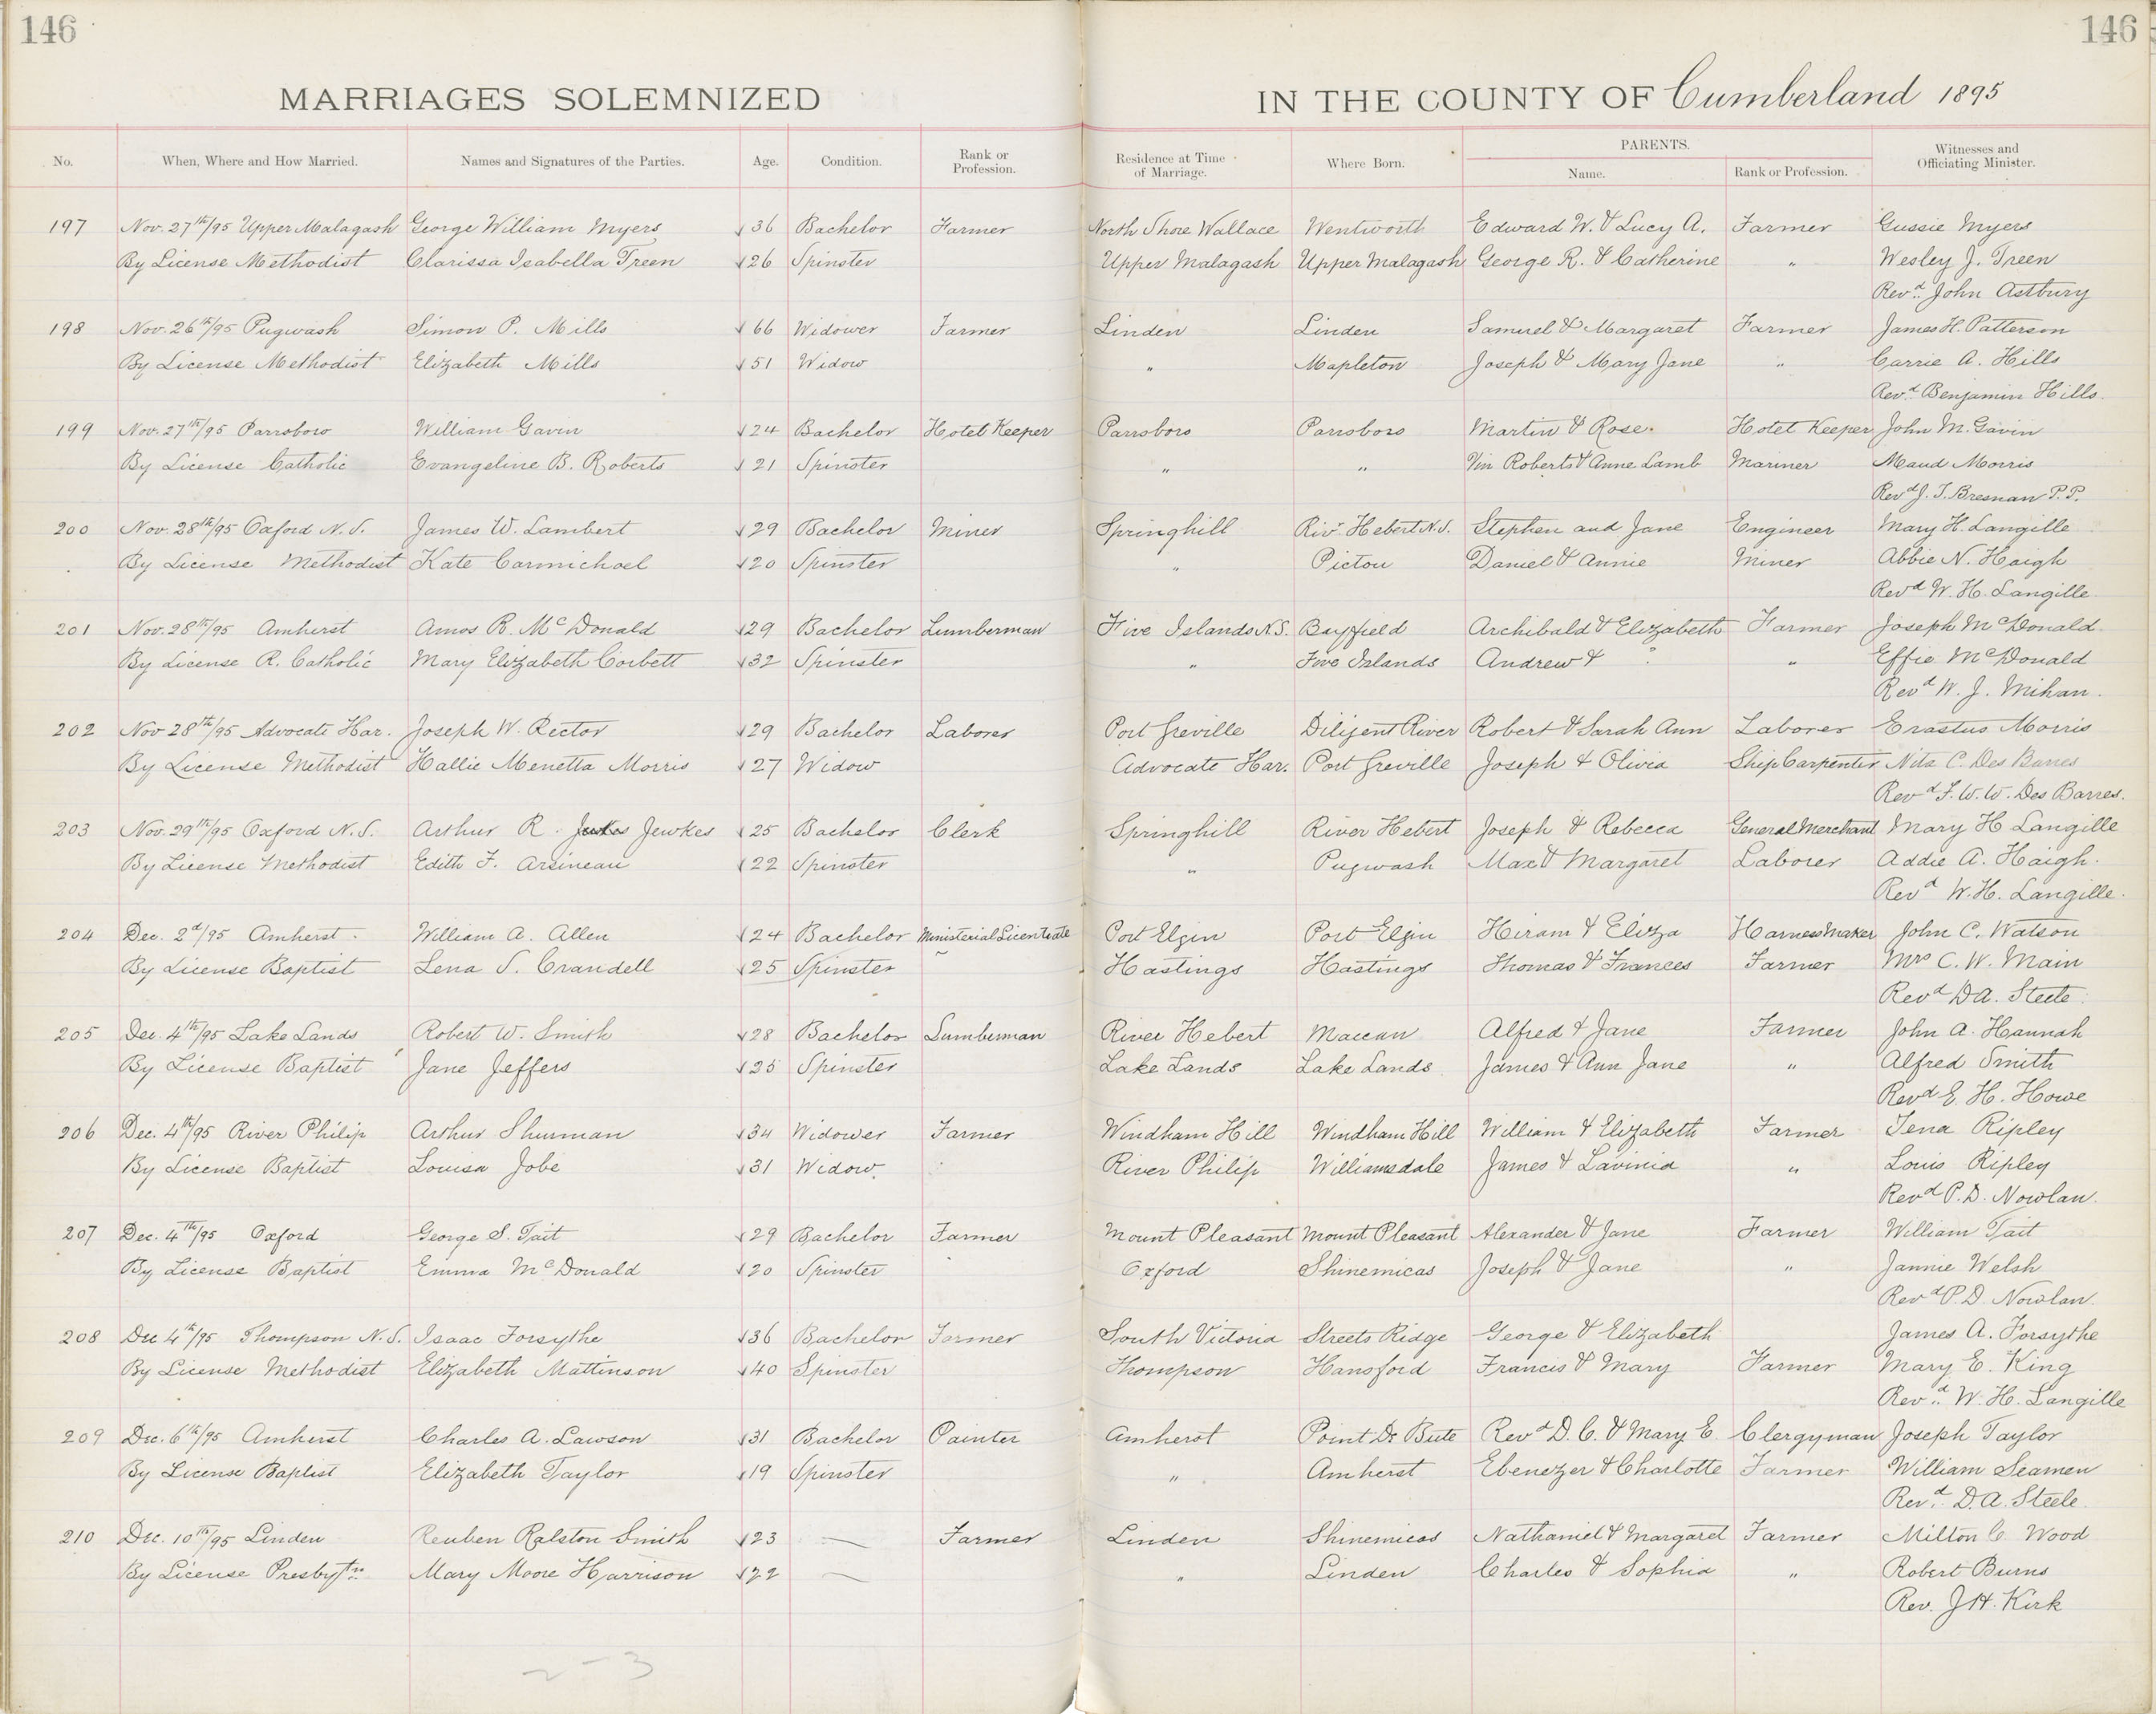 146
146
MARRIAGES SOLEMNIZED
IN THE COUNTY OF Cumberland 1895
No. When, Where and How Married. Names and Signatures of the Parties. Age. Condition. Rank or Profession. Residence at Time of Marriage. Where Born. PARENTS. Name. Rank or Profession. Witnesses and Officiating Minister.
197 Nov. 27th/95 Upper Malagash George William Myers 36 Bachelor Farmer North Shore Wallace Wentworth Edward W. & Lucy A. Farmer Gussie Myers
By License Methodist Clarissa Isabella Treen 26 Spinster Upper Malagash Upper Malagash George R. & Catherine " Wesley J. Treen
Revd. John Astbury
198 Nov. 26th/95 Pugwash Simon P. Mills 66 Widower Farmer Linden Linden Samuel & Margaret Farmer James H. Patterson
By License Methodist Elizabeth Mills 51 Widow " Mapleton Joseph & Mary Jane " Carrie A. Hills
Revd. Benjamin Hills.
199 Nov. 27th/95 Parrsboro William Gavin 24 Bachelor Hotel Keeper Parrsboro Parrsboro Martin & Rose. Hotel Keeper John M. Gavin
By License Catholic Evangeline B. Roberts 21 Spinster " " Vin Roberts & Anne Lamb Mariner Maud Morris
Revd J. T. Bresnan P.P.
200 Nov. 28th/95 Oxford N.S. James W. Lambert 29 Bachelor Miner Springhill Rivr Hebert N.S. Stephen and Jane Engineer Mary H. Langille
By License Methodist Kate Carmichael 20 Spinster " Pictou Daniel & Annie Miner Abbie N. Haigh
Revd W. H. Langille.
201 Nov. 28th/95 Amherst Amos R. McDonald 29 Bachelor Lumberman Five Islands N.S. Bayfield Archibald & Elizabeth Farmer Joseph McDonald.
By License R. Catholic Mary Elizabeth Corbett 32 Spinster " Five Islands Andrew & ? " Effie McDonald
Revd W. J. Mihan.
202 Nov 28th/95 Advocate Har. Joseph W. Rector 29 Bachelor Laborer Port Greville Diligent River Robert & Sarah Ann Laborer Erastus Morris
By License Methodist Hallie Menetta Morris 27 Widow Advocate Har. Port Greville Joseph & Olivia Ship Carpenter Nita C. Des Barres
Revd F. W. W. Des Barres.
203 Nov. 29th/95 Oxford N.S. Arthur R. Jewkes 25 Bachelor Clerk Springhill River Hebert Joseph & Rebecca General Merchant Mary H Langille
By License Methodist Edith F. Arsineau 22 Spinster " Pugwash Max & Margaret Laborer Addie A. Haigh.
Revd W. H. Langille.
204 Dec. 2d/95 Amherst. William A. Allen 24 Bachelor Ministerial Licentiate Port Elgin Port Elgin Hiram & Eliza Harness Maker John C. Watson
By License Baptist Lena S. Crandell 25 Spinster Hastings Hastings Thomas & Frances Farmer Mrs C. W. Main
Revd D A. Steele.
205 Dec. 4th/95 Lake Lands Robert W. Smith 28 Bachelor Lumberman River Hebert Maccan Alfred & Jane Farmer John A. Hannah
By License Baptist Jane Jeffers 25 Spinster Lake Lands Lake Lands James & Ann Jane " Alfred Smith
Revd E. H. Howe
206 Dec. 4th/95 River Philip Arthur Shurman 34 Widower Farmer Windham Hill Windham Hill William & Elizabeth Farmer Tena Ripley
By License Baptist Louisa Jobe 31 Widow. River Philip Williamsdale James & Lavinia " Louis Ripley
Revd P. D. Nowlan.
207 Dec. 4th/95 Oxford George S. Tait 29 Bachelor Farmer Mount Pleasant Mount Pleasant Alexander & Jane Farmer William Tait
By License Baptist Emma McDonald 20 Spinster Oxford Shinemicas Joseph & Jane " Jannie Welsh
Revd P. D. Nowlan.
208 Dec 4th/95 Thompson N.S. Isaac Forsythe 36 Bachelor Farmer South Victoria Streets Ridge George & Elizabeth James A. Forsythe
By License Methodist Elizabeth Mattinson 40 Spinster Thompson Hansford Francis & Mary Farmer Mary E. King
Revd. W. H. Langille
209 Dec. 6th/95 Amherst Charles A. Lawson 31 Bachelor Painter Amherst Point De Bute Revd D. C. & Mary E. Clergyman Joseph Taylor
By License Baptist Elizabeth Taylor 19 Spinster " Amherst Ebenezer & Charlotte Farmer William Seamen
Revd. D. A. Steele.
210 Dec. 10th/95 Linden Reuben Ralston Smith 23 — Farmer Linden Shinemicas Nathaniel & Margaret Farmer Milton C. Wood
By License Presbytn. Mary Moore Harrison 22 — " Linden Charles & Sophia " Robert Burns
Rev. J H. Kirk
2-3